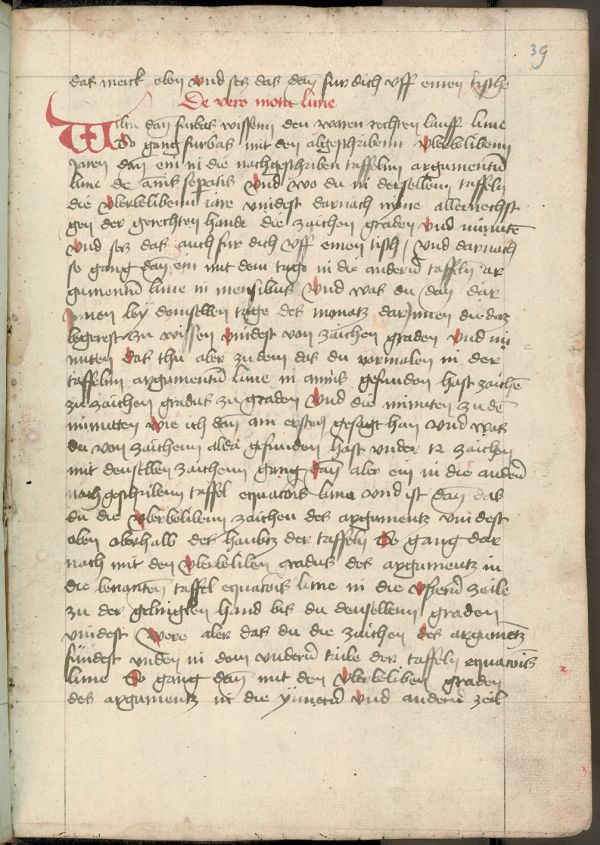 39
das merck eben vnd setz das dan fur dich vff einen tische
De vero motu lune
Wiltu dan furbas wissenn den waren rechten lauff lune
So gang furbas mit den abgeschribenn vberbelibenn
Jaren dan ein in die nachgeschriben taffelnn argumentū
lune de annis separatis vnd wo du in derselbenn taffeln
die vberbelibenn iare vindest darnach nyme allernechst
gen der gerechten hande die zaichen graden vnd minutē
vnd setz das auch fur dich vff einen tisch / vnd darnach
so gang dan ein mit dem tage in die anderū taffeln ar
gumentū lune in mensibus vnd was du dan dar
innen bey demselben tage des monatz dar Inen die daz
begerest zu wissen vindest von zaichen graden vnd mi
nuten das thu aber zu dem das du vormalen in der
taffelnn argumentū lune in annis gefunden hast zaichē
zu zaichen gradus zu graden vnd die minuten zu dē
minutten wie ich dan am ersten gesagt han vnd was
du von zaichenn alda gefunden hast vnder 12 zaichen
mit denselben zaichenn gang dan aber ein in die anderū
nachgeschribenn taffel equacōis lune vnd ist dan das
du die vberbelibenn zaichen des argumentz vindest
oben oberhalb des haubtz der taffeln So gang dar
nach mit den vberbeliben gradus des argumentz in
die benanten taffel equacōis lune in die vsserū zeile
zu der gelingken hand bis du denselbenn graden
vindest Were aber das du die zaichen des argumētz
fundest vnden in dem vnderū taile der taffeln equacōis
lune So gang dan mit den vberbeliben graden
des argumentz in die ynnerū vnd anderū zeil